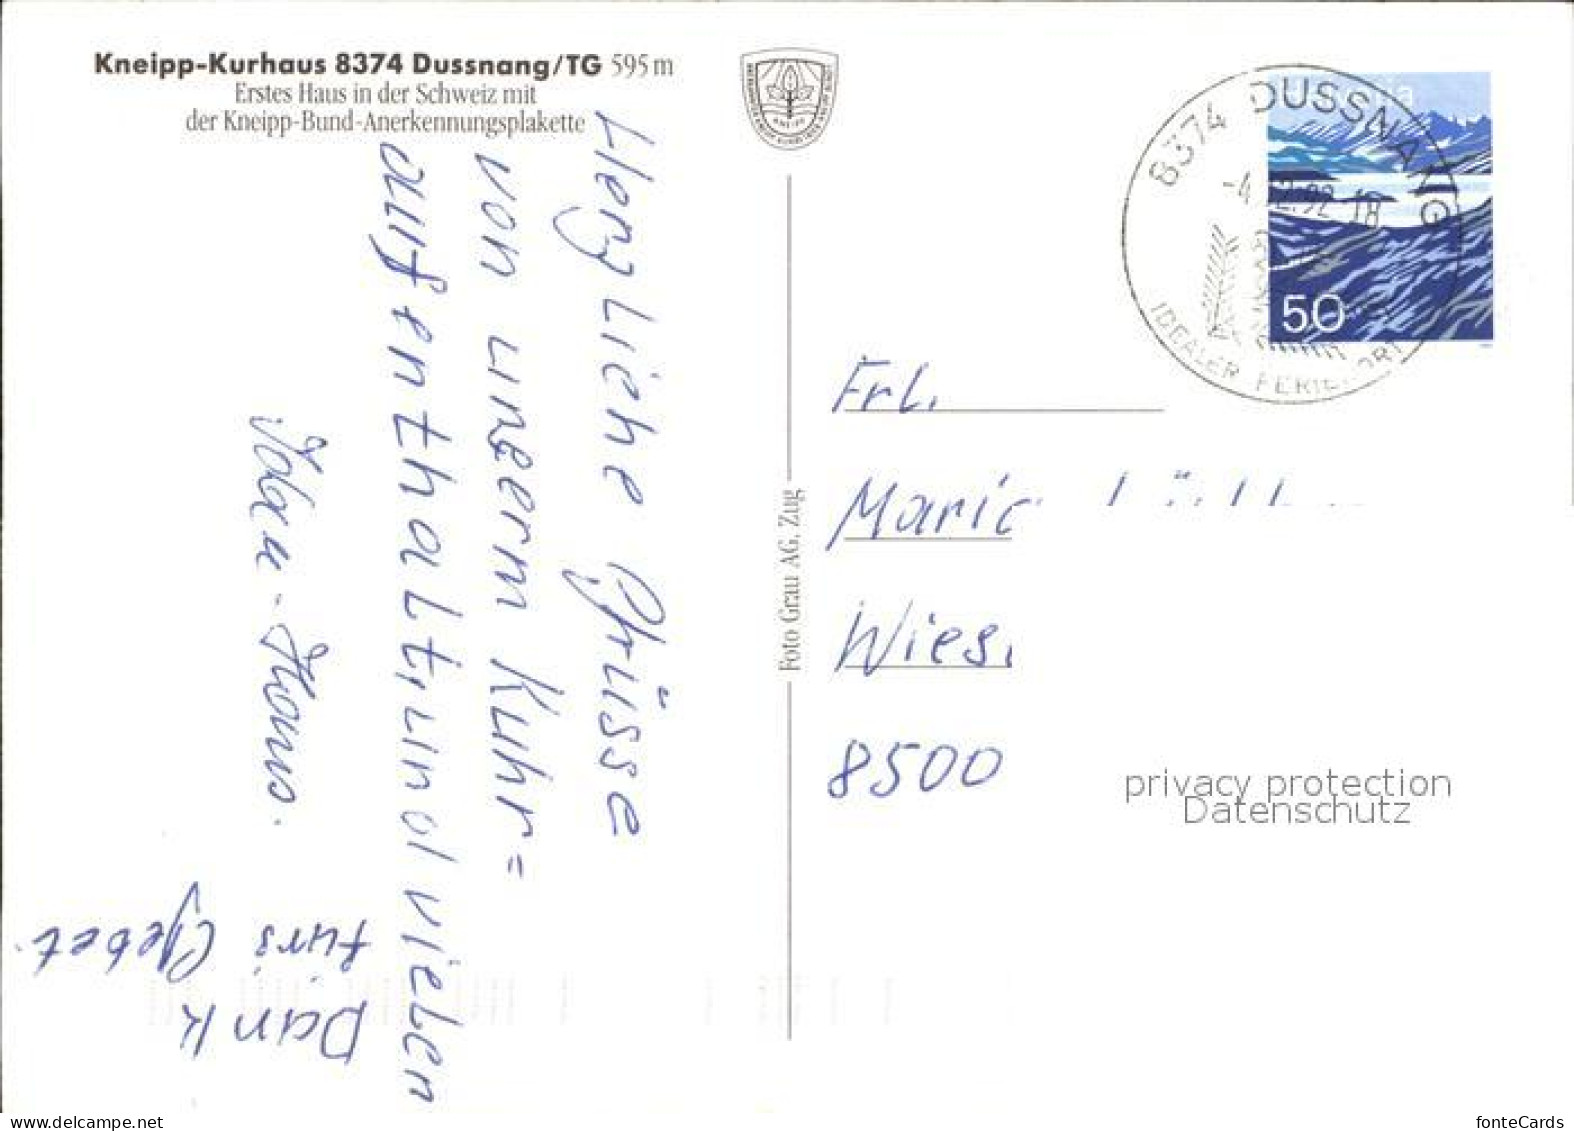 Kneipp-Kurhaus 8374 Dussnang/TG 595 m
Erstes Haus in der Schweiz mit
der Kneipp-Bund-Anerkennungsplakette
Herzliche Grüsse
von unserm Kuhr=
aufenthalt und vielen
Dank
fürs Gebet.
Foto Grau AG, Zug
8374 DUSSNANG
-4. 2.92 18
IDEALER FERIENORT
Helvetia
50
Frl.
Wies.
8500
privacy protection
Datenschutz
www.delcampe.net
fonteCards